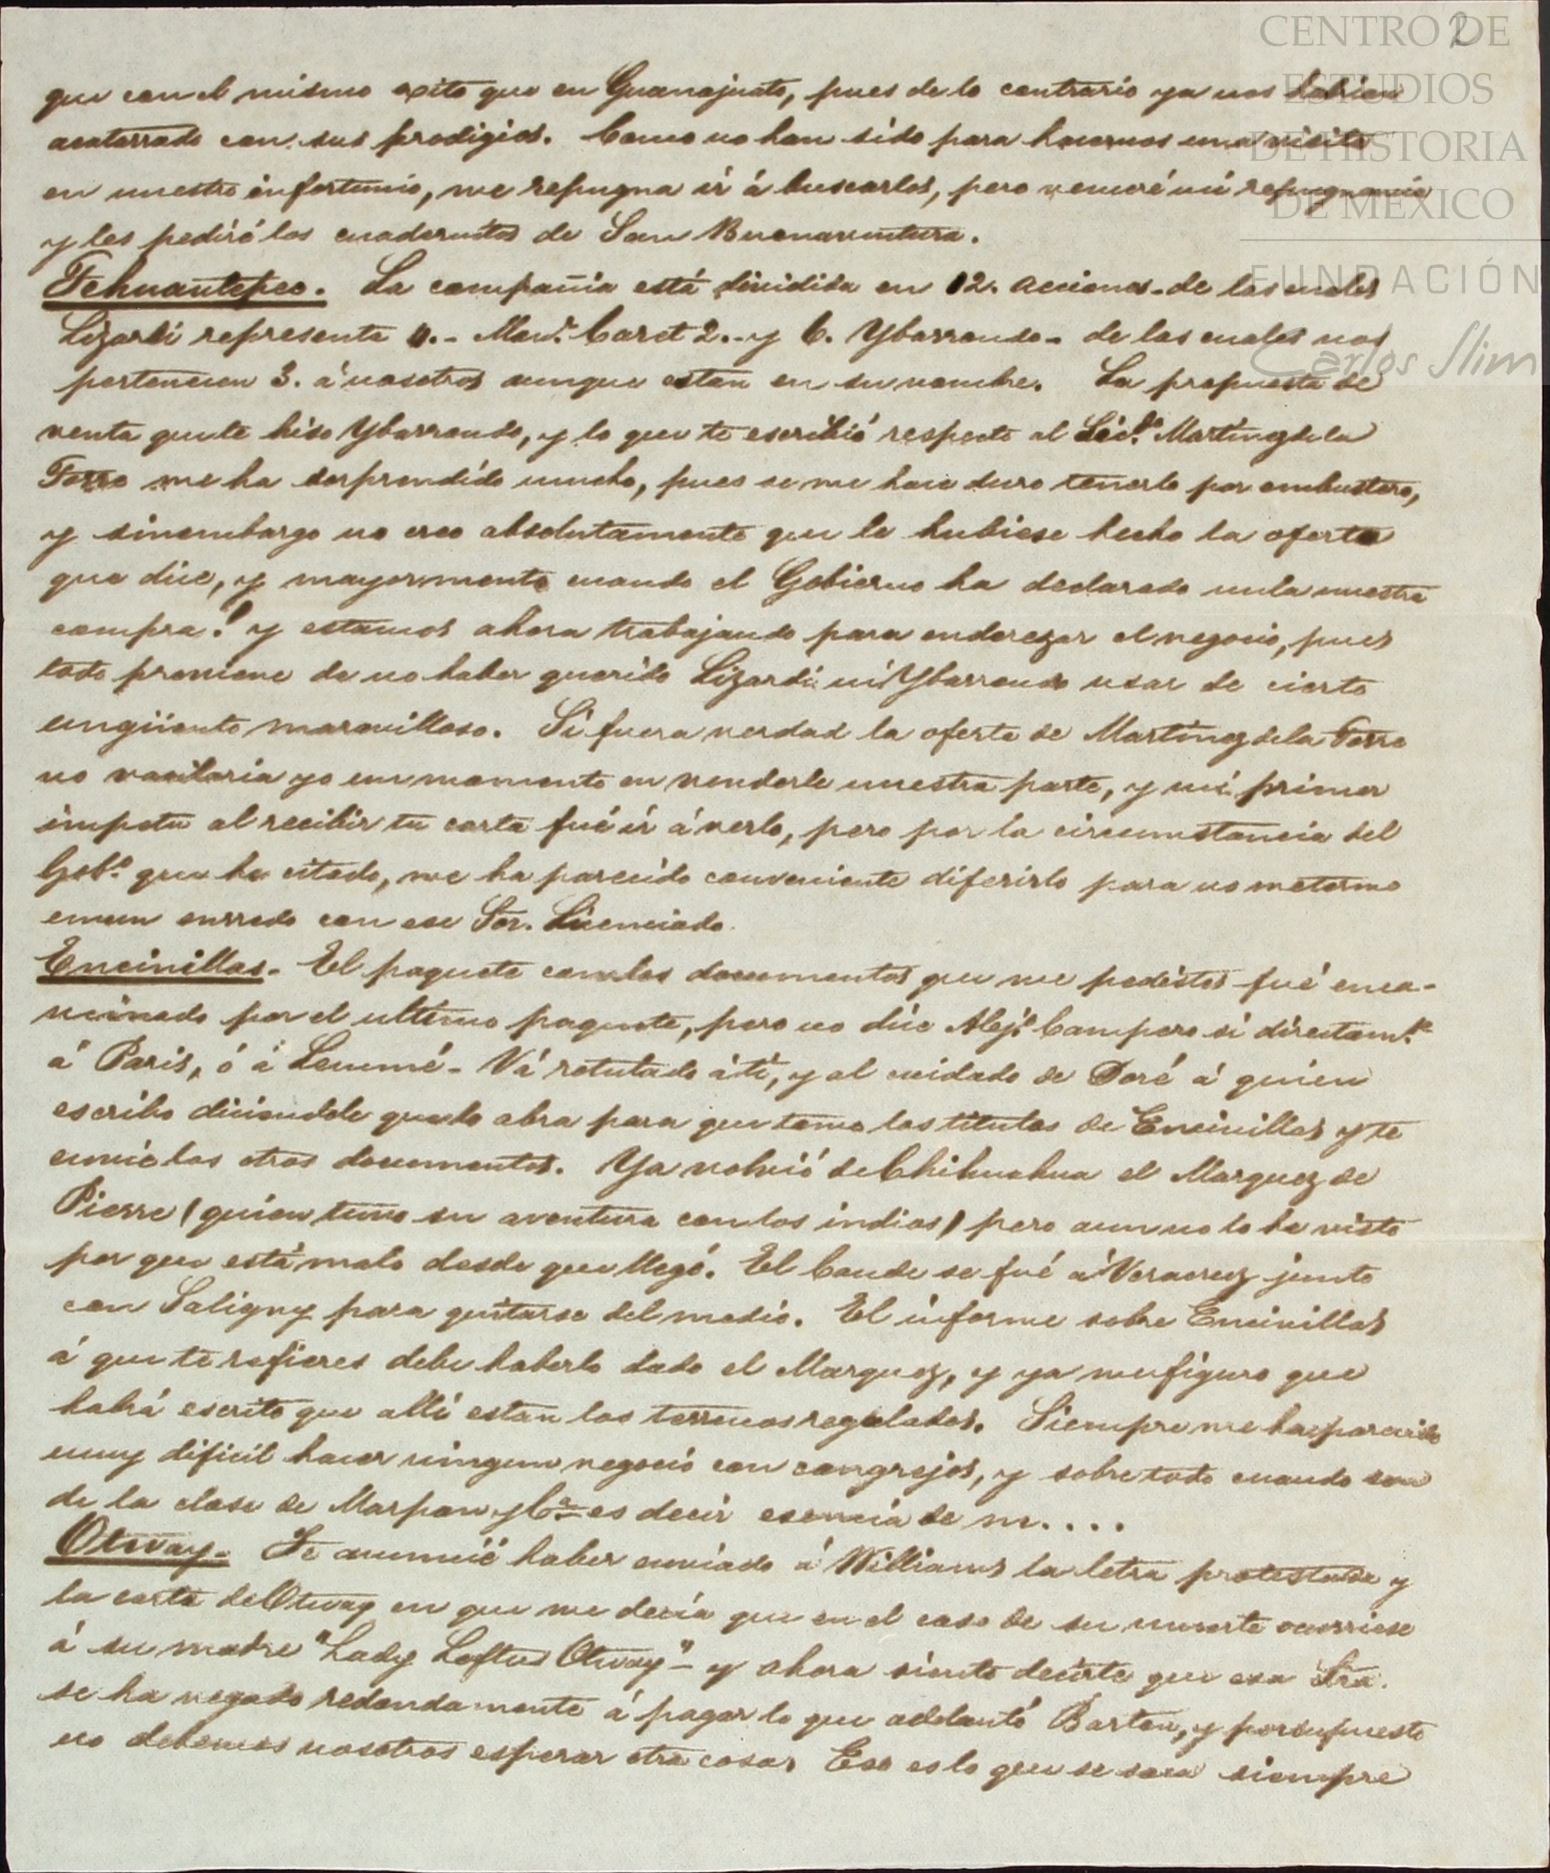 2
CENTRO DE
ESTUDIOS
DE HISTORIA
DE MEXICO
FUNDACIÓN
Carlos Slim
que con el mismo exito que en Guanajuato, pues de lo contrario ya nos habian
acatarrado con sus prodigios. Como no han sido para hacernos una visita
en nuestro infortunio, me repugna ir á buscarlos, pero venceré mi repugnancia
y les pediré los cuadernitos de San Buenaventura.
Tehuantepec. La compañia está dividida en 12. acciones de las cuales
Lizardi representa 4.- Man.l Caret 2.- y 6. Ybarrondo - de las cuales nos
pertenecen 3. á nosotros aunque estan en su nombre. La propuesta de
venta que te hiso Ybarrondo, y lo que te escribió respecto al Lic.do Martinez de la
Torre me ha sorprendido mucho, pues se me hace duro tenerlo por embustero,
y sinembargo no creo absolutamente que le hubiese hecho la oferta
que dice, y mayormente cuando el Gobierno ha declarado nula nuestra
compra! y estamos ahora trabajando para enderezar el negocio, pues
todo proviene de no haber querido Lizardi ni Ybarrondo usar de cierto
ungüento maravilloso. Si fuera verdad la oferta de Martinez de la Torre
no vacilaria yo un momento en venderle nuestra parte, y mi primer
impetu al recibir tu carta fué ir á verlo, pero por la circumstancia del
Gob.o que he citado, me ha parecido conveniente diferirlo para no meterme
en un enredo con ese Sor. Licenciado.
Encinillas. El paquete con los documentos que me pedistes fué enca-
minado por el ultimo paquete, pero no dice Alej.o Campero si directam.te
á Paris, ó á Lemmé - Vá rotulado á tí, y al cuidado de Doré á quien
escribo diciendole que lo abra para que tome los titulos de Encinillas y te
envie los otros documentos. Ya volvió de Chihuahua el Marquez de
Pierre (quien tuvo su aventura con los indios) pero aun no lo he visto
por que está malo desde que llegó. El Conde se fué á Veracruz junto
con Saligny para quitarse del medio. El informe sobre Encinillas
á que te refieres debe haberlo dado el Marquez, y ya me figuro que
habrá escrito que allí estan los terrenos regalados. Siempre me ha parecido
muy dificil hacer ningun negocio con cangrejos, y sobre todo cuando son
de la clase de Marpon y C.a es decir esencia de m....
Otway. Te anuncié haber enviado á Williams la letra protestada y
la carta de Otway en que me decia que en el caso de su muerte ocurriese
á su madre "Lady Loftus Otway" - y ahora siento decirte que esa Sra.
se ha negado redondamente á pagar lo que adelantó Barton, y por supuesto
no debemos nosotros esperar otra cosa. Eso es lo que se saca siempre